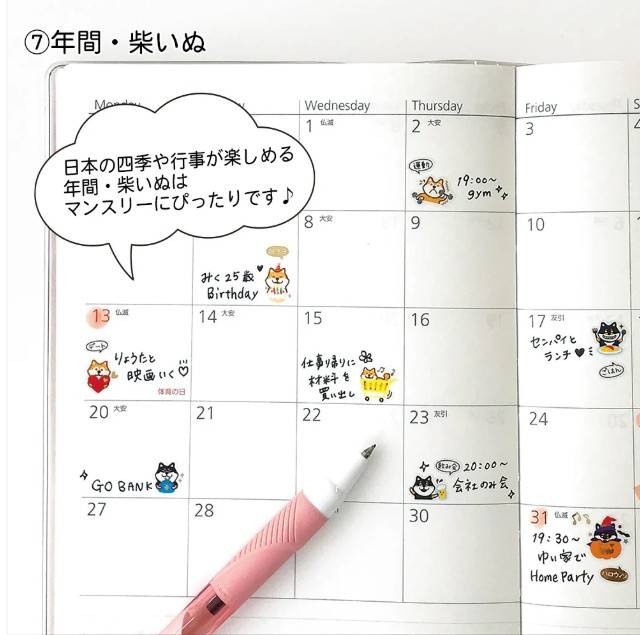 ⑦年間・柴いぬ
日本の四季や行事が楽しめる
年間・柴いぬは
マンスリーにぴったりです♪
Wednesday
Thursday
Friday
1 仏滅
2 大安
3
運動
19:00〜
gym
8 大安
9
10
みく25歳
Birthday
13 仏滅
14 大安
15
16
17 友引
デート
りょうたと
映画いく♡
体育の日
仕事帰りに
材料を
買い出し
センパイと
ランチ♥
ごはん
20 大安
21
22
23 友引
24
GO BANK
飲み会
20:00〜
会社のみ会
27
28
30
31 仏滅
19:30〜
ゆい家で
Home Party
ハロウィン